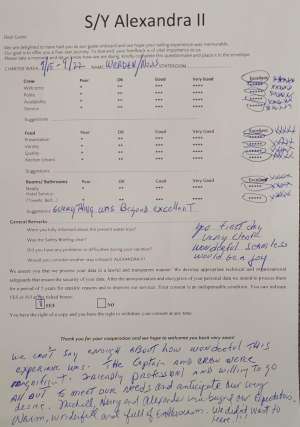 S/Y Alexandra II
Dear Guest
We are delighted to have had you as our guest onboard and we hope your sailing experience was memorable.
Our goal is to offer you a five-star journey. To that end your feedback is of vital importance to us.
Please take a moment and let us know how we are doing. Kindly complete this questionnaire and place it in the envelope
CHARTER WEEK: 9/15 - 9/22 NAME
Crew Poor OK Good Very Good Excellent
Welcome * ** *** **** *****
Polite * ** *** **** *****
Availability * ** *** **** *****
Service * ** *** **** *****
Suggestions
Food Poor OK Good Very Good Excellent
Presentation * ** *** **** *****
Variety * ** *** **** *****
Quality * ** *** **** *****
Kitchen * ** *** **** *****
Suggestions
Rooms/ Bathrooms Poor OK Good Very Good Excellent
Ready * ** *** **** *****
Hotel Service * ** *** **** *****
Suggestions: everything was Beyond excellent
General Remarks
Were you fully informed about the
Was the Safety Briefing clear?
Did you have any problems or difficulties during your vacation?
Would you consider another trip onboard ALEXANDRA II?
yes first day
very clear
wonderful seamless
would be a joy
We assure you that we process your data in a lawful and transparent manner. We develop appropriate technical and organizational
safeguards that ensure the security of your data. After the anonymization and encryption of your personal data we intend to process them
for a period of 5 years for statistic reasons and to improve our services. Your consent is an indispensable condition. You can indicate
YES or NO in the ticked boxes:
YES NO
You have the right of a copy and you have the right to withdraw your consent at any time.
Thank you for your cooperation and we hope to welcome you back very soon!
We can't say enough about how wonderful this
experience was. The Captain and crew were
magnificent. Friendly, professional and willing to go
all out to meet our needs and anticipate our every
desire. and Alexander were beyond our expectations.
Warm, wonderful and full of enthusiasm. We didn't want to
leave!!!